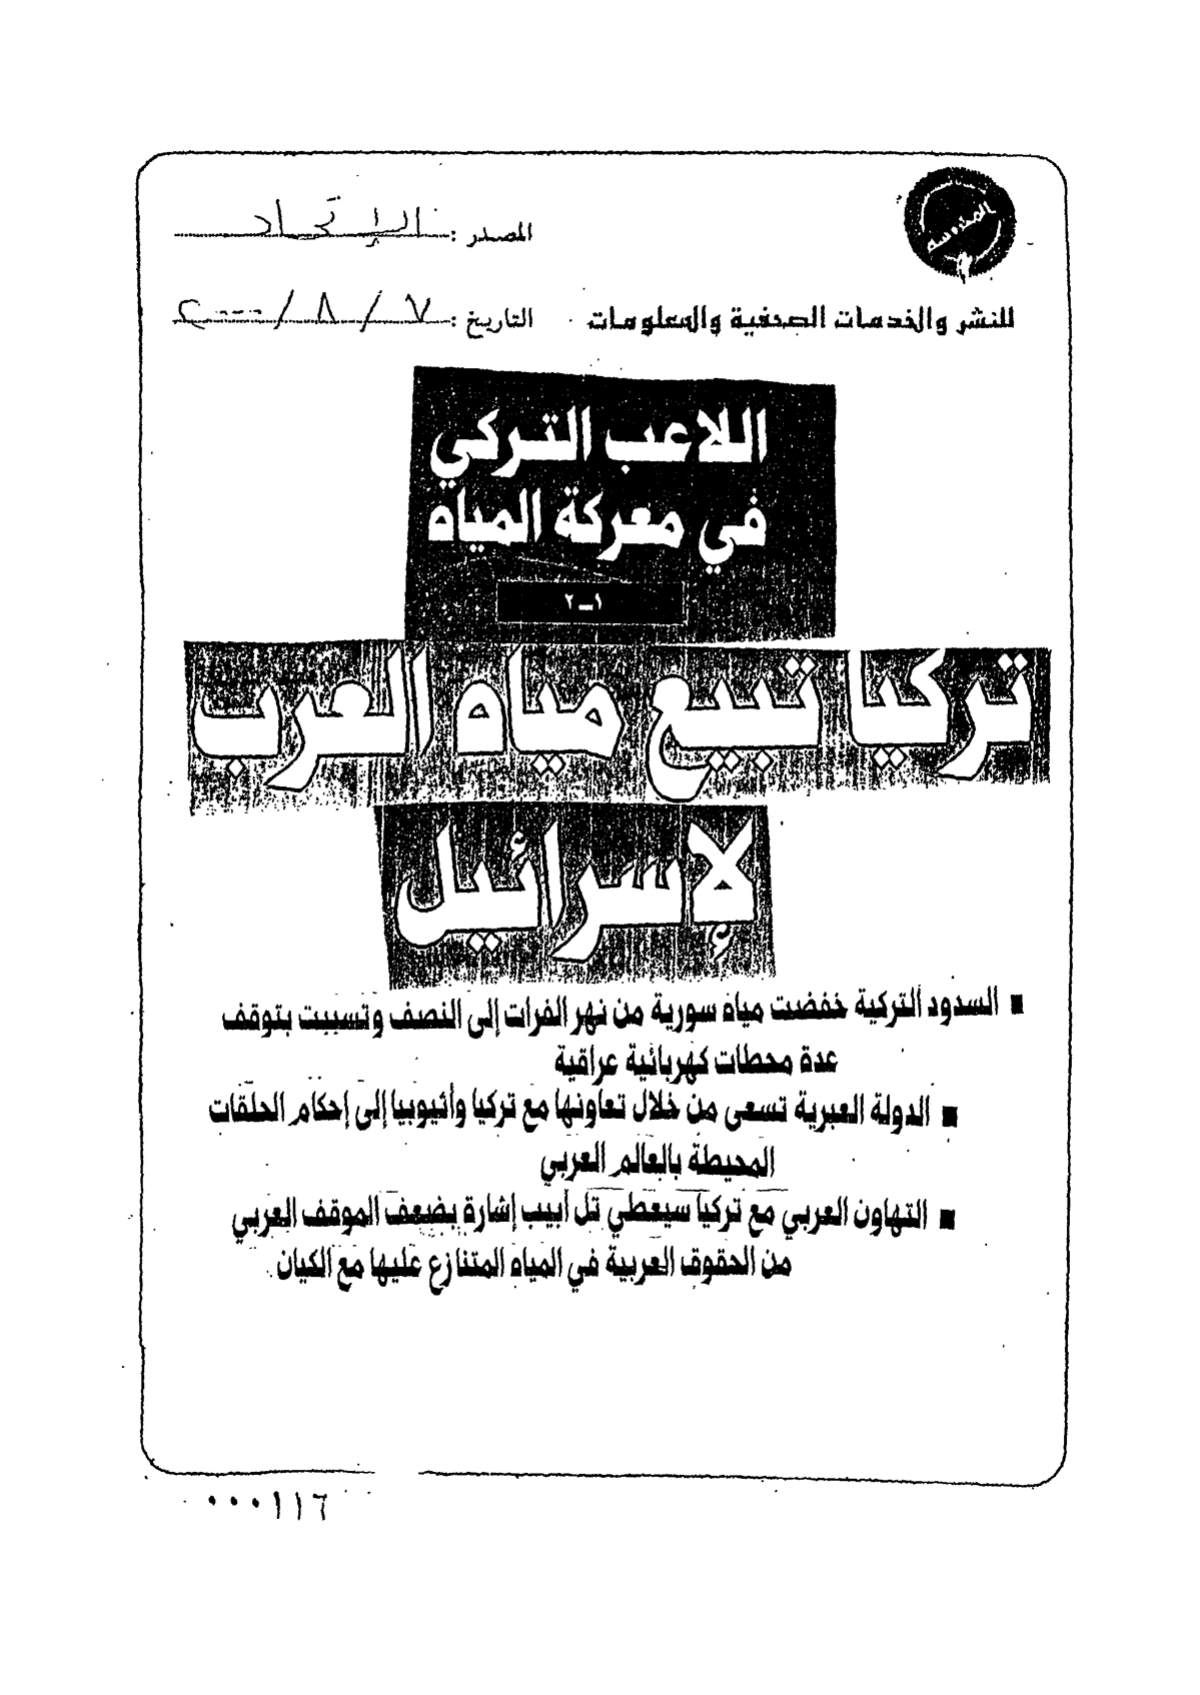 المحروسة
المصدر : الإتحاد
للنشر والخدمات الصحفية والمعلومات
التاريخ : ٧ / ٨ / ٢٠٠٠
اللاعب التركي
في معركة المياه
١ــ٢
تركيا تبيع مياه العرب
لإسرائيل
■ السدود التركية خفضت مياه سورية من نهر الفرات إلى النصف وتسببت بتوقف
عدة محطات كهربائية عراقية
■ الدولة العبرية تسعى من خلال تعاونها مع تركيا وأثيوبيا إلى إحكام الحلقات
المحيطة بالعالم العربي
■ التهاون العربي مع تركيا سيعطي تل أبيب إشارة بضعف الموقف العربي
من الحقوق العربية في المياه المتنازع عليها مع الكيان
٠٠٠١١٦